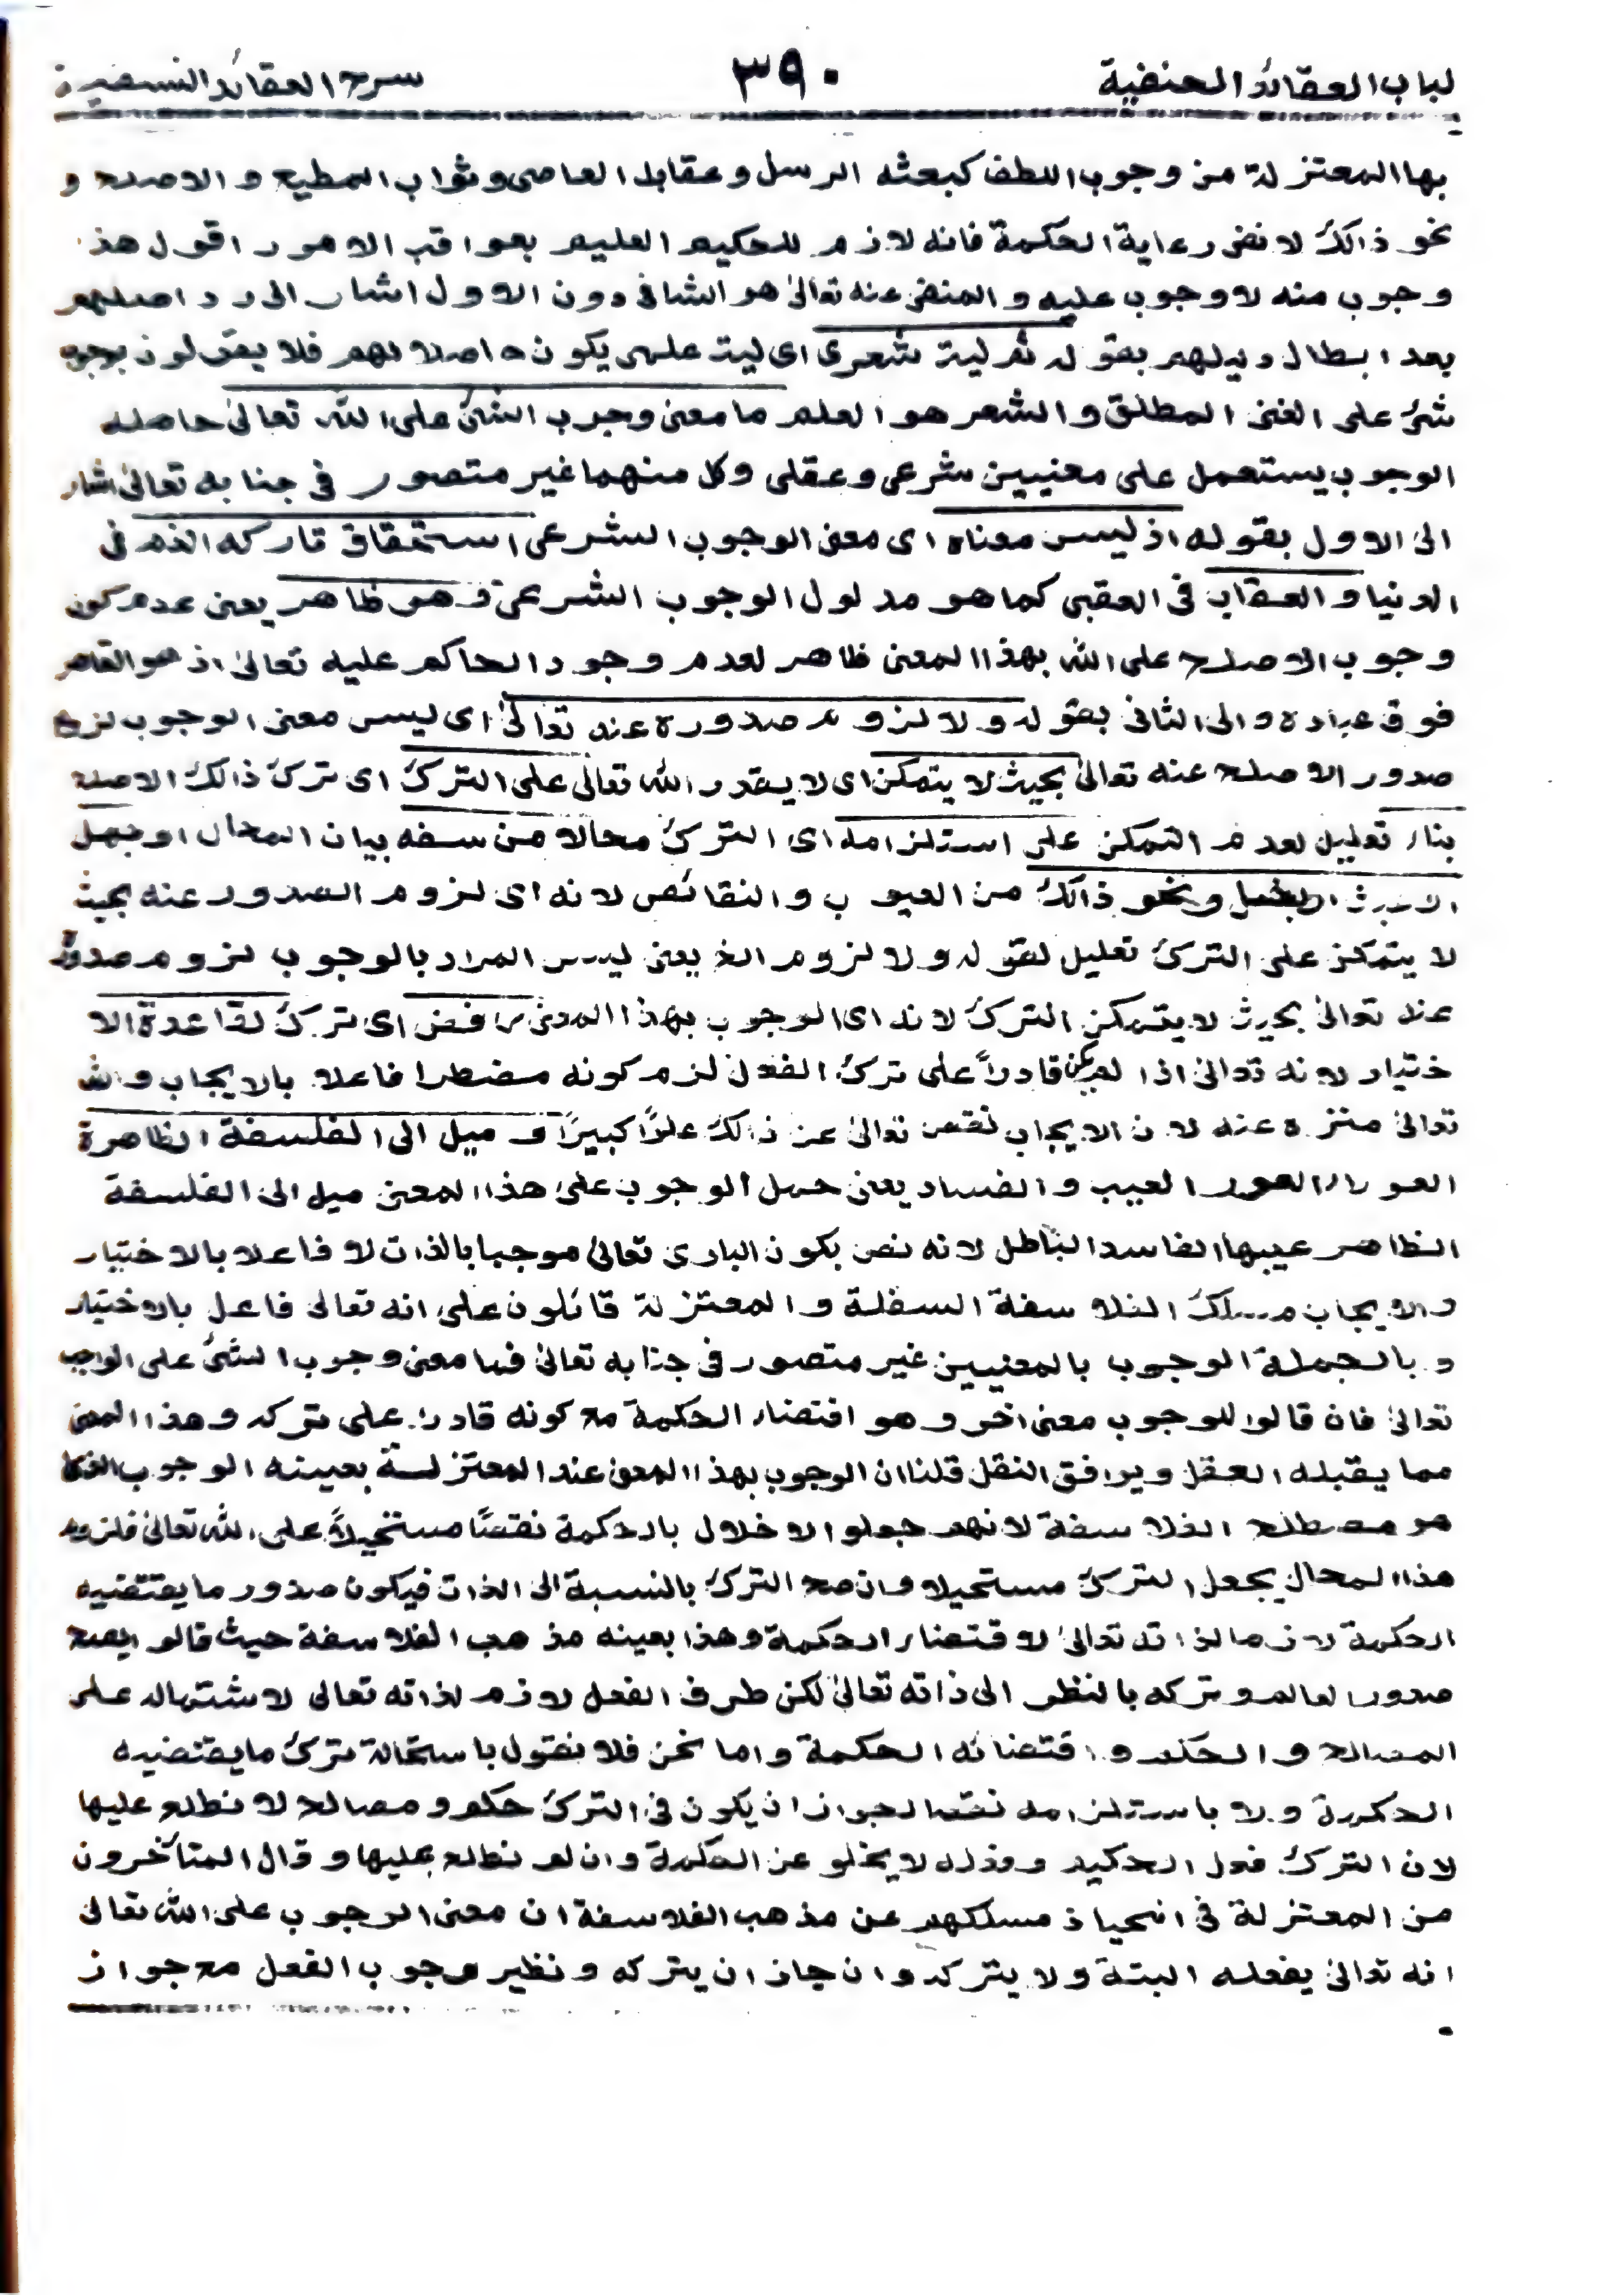 لباب العقائد الحنفية ٣٩٠ شرح العقائد النسفية
بها المعتزلة من وجوب اللطف كبعثه الرسل وعقابل العاصى وثواب المطيع والاصلح و
نحو ذالك لانفى رعاية الحكمة فانه لازم للحكيم العليم بعواقب الامور اقول هذ
وجوب منه لاوجوب عليه والمنفى عنه تعالى هو الثانى دون الاول اشار الى رد اصلهم
بعد ابطال دليلهم بقوله ثم ليت شعرى اى ليت علمى يكون حاصلا لهم فلا يقولون بوجوب
شئ على الغنى المطلق والشعر هو العلم ما معنى وجوب الشئ على الله تعالى حاصله
الوجوب يستعمل على معنيين شرعى وعقلى وكل منهما غير متصور فى جنابه تعالى اشار
الى الاول بقوله اذ ليس معناه اى معنى الوجوب الشرعى استحقاق تاركه الذم فى
الدنيا والعقاب فى العقبى كما هو مدلول الوجوب الشرعى وهو ظاهر يعنى عدم كون
وجوب الاصلح على الله بهذا المعنى ظاهر لعدم وجود الحاكم عليه تعالى اذ هو القاهر
فوق عباده والى الثانى بقوله ولا لزوم صدوره عنه تعالى اى ليس معنى الوجوب لزوم
صدور الاصلح عنه تعالى بحيث لا يتمكن اى لا يقدر الله تعالى على الترك اى ترك ذالك الاصلح
بناء تعليل لعدم التمكن على استلزامه اى الترك محالا من سفه بيان المحال او جهل
او عبث او بخل ونحو ذالك من العيوب والنقائص لانه اى لزوم الصدور عنه بحيث
لا يتمكن على الترك تعليل لقوله ولا لزوم الخ يعنى ليس المراد بالوجوب لزوم صدوره
عنه تعالى بحيث لا يتمكن الترك لانه اى الوجوب بهذا المعنى رفض اى ترك لقاعدة الا
ختيار لانه تعالى اذا لم يكن قادراً على ترك الفعل لزم كونه مضطرا فاعلا بالايجاب والله
تعالى منزه عنه لان الايجاب نقص تعالى عن ذالك علوًّا كبيرًا و ميل الى الفلسفة الظاهرة
العوار العور العيب والفساد يعنى حمل الوجوب على هذا المعنى ميل الى الفلسفة
الظاهر عيبها الفاسد الباطل لانه نص بكون البارى تعالى موجبا بالذات لا فاعلا بالاختيار
والايجاب مسلك الفلاسفة السفلة والمعتزلة قائلون على انه تعالى فاعل بالاختيار
وبالجملة الوجوب بالمعنيين غير متصور فى جنابه تعالى فما معنى وجوب الشئ على الواجب
تعالى فان قالوا للوجوب معنى اخر وهو اقتضاء الحكمة مع كونه قادرا على تركه وهذا المعنى
مما يقبله العقل ويوافق النقل قلنا ان الوجوب بهذا المعنى عند المعتزلة بعينه الوجوب الذى
هو مصطلح الفلاسفة لانهم جعلوا الاخلال بالحكمة نقصًا مستحيلاً على الله تعالى فلزوم
هذا المحال يجعل الترك مستحيلا وان صح الترك بالنسبة الى الذات فيكون صدور ما يقتضيه
الحكمة لازما لذاته تعالى لاقتضاء الحكمة وهذا بعينه مذهب الفلاسفة حيث قالوا يصح
صدور العالم وتركه بالنظر الى ذاته تعالى لكن طرف الفعل لازم لذاته تعالى لاشتماله على
المصالح والحكم واقتضائه الحكمة واما نحن فلا نقول باستحالة ترك ما يقتضيه
الحكمة ولا باستلزامه نقصا لجواز ان يكون فى الترك حكم ومصالح لا نطلع عليها
لان الترك فعل الحكيم وفعله لا يخلو عن الحكمة وان لم نطلع عليها وقال المتأخرون
من المعتزلة فى انحياز مسلكهم عن مذهب الفلاسفة ان معنى الوجوب على الله تعالى
انه تعالى يفعله البتة ولا يتركه وان جاز ان يتركه ونظير وجوب الفعل مع جواز